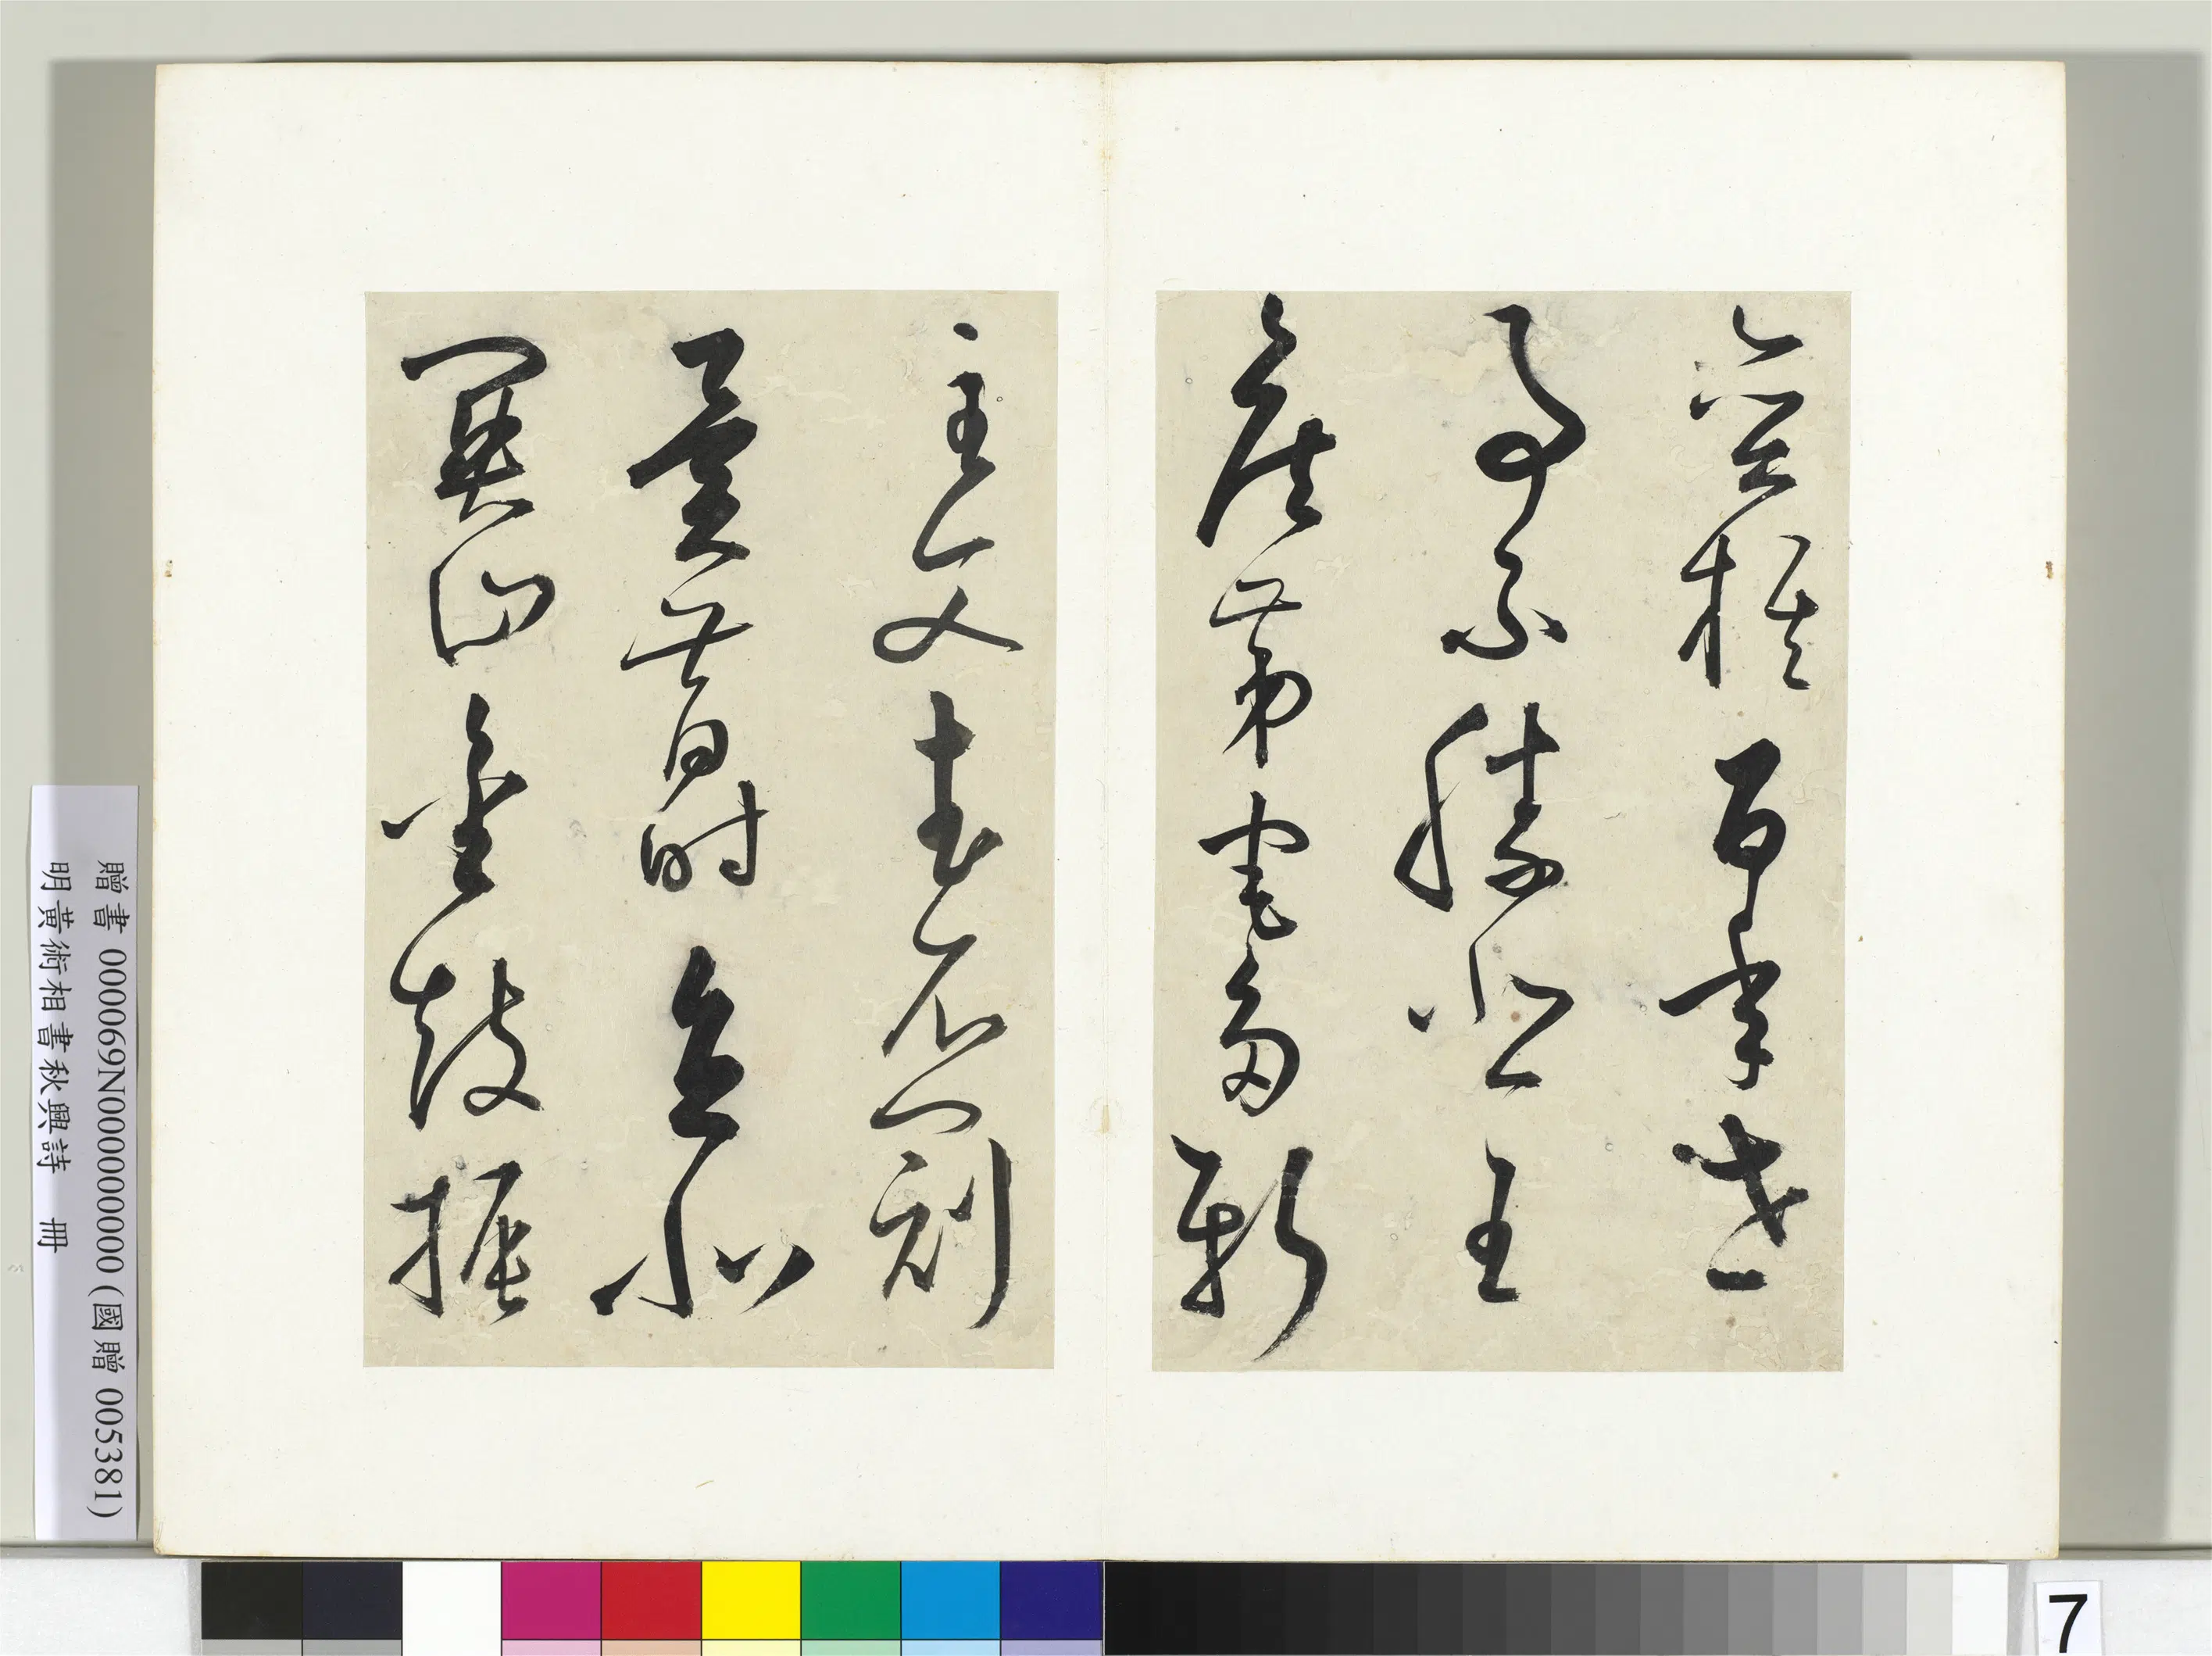 奕棋百年世
事不勝悲王
侯第宅多新
主文武衣冠
異昔時直北
關山金鼓振
贈書 000069N000000000 (國贈 005381)
明黃術相書秋興詩 冊
7